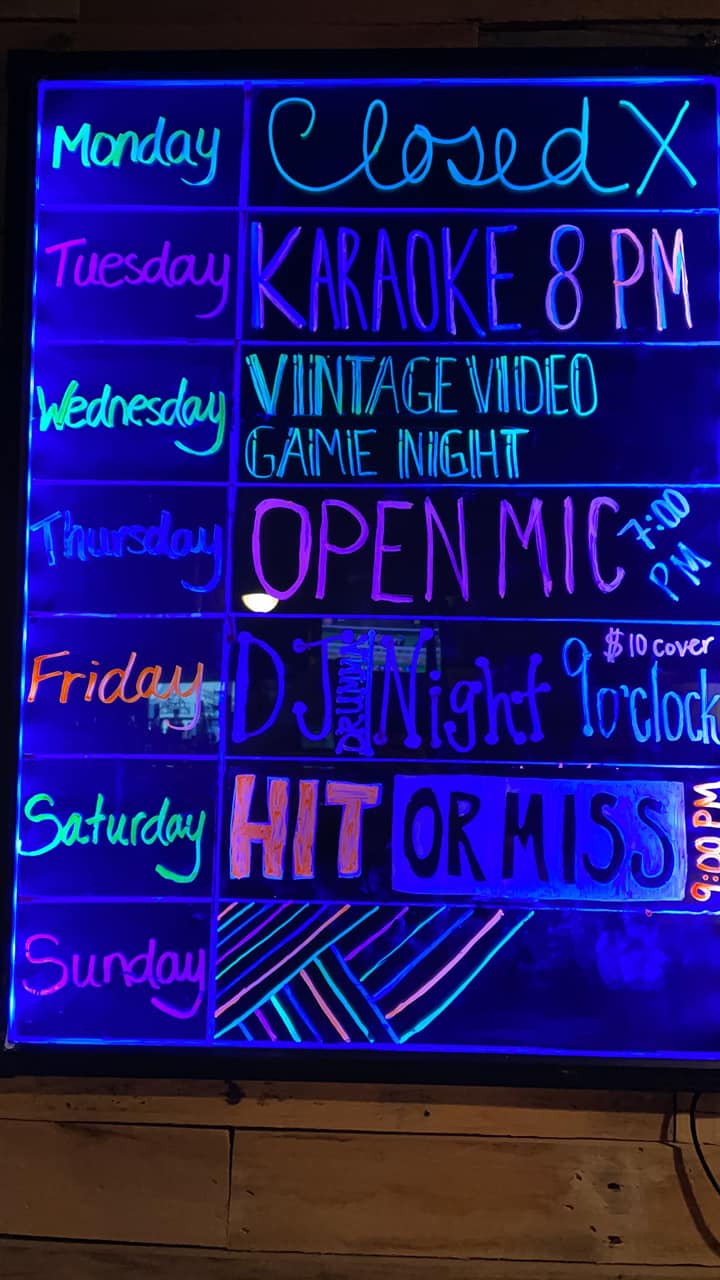 Monday
Closed X
Tuesday
KARAOKE 8 PM
Wednesday
VINTAGE VIDEO
GAME NIGHT
Thursday
OPEN MIC 7:00
PM
Friday
$10 cover
DJ Night 9o'clock
Saturday
HIT OR MISS 9:00 PM
Sunday